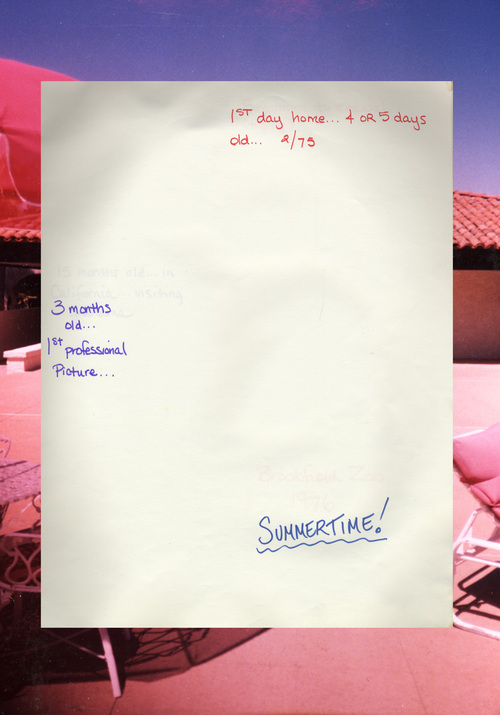 1ST day home... 4 OR 5 days
old... 2/75
15 months old... in
California... visiting
3 months
old...
1st professional
Picture...
Brookfield Zoo
1976
SUMMERTIME!